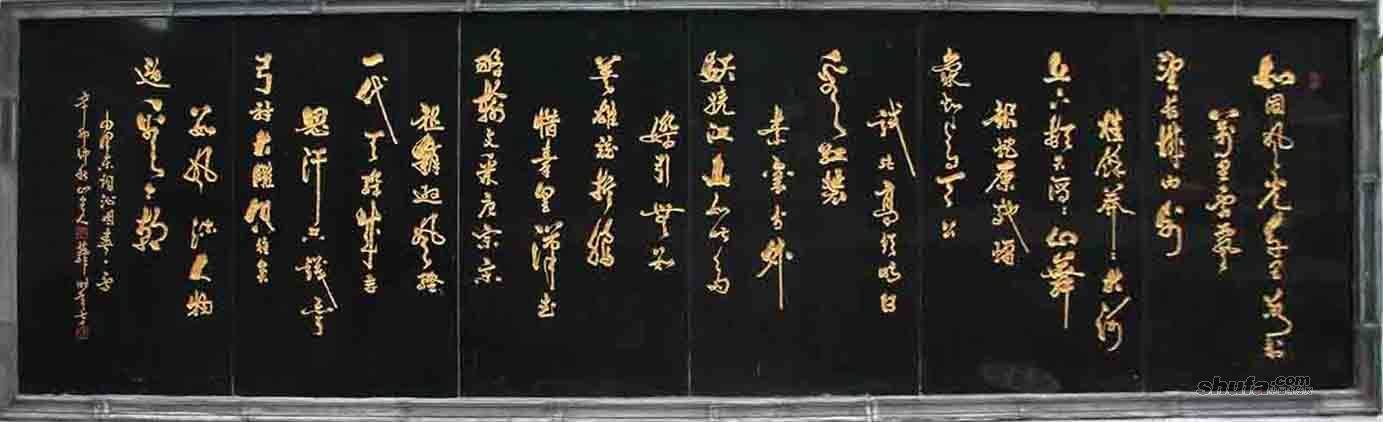 北国风光千里冰封
万里雪飘
望长城内外
惟余莽莽大河
上下顿失滔滔山舞
银蛇原驰蜡
象欲与天公
试比高须晴日
看红装
素裹分外
妖娆江山如此多
娇引无数
英雄竞折腰
惜秦皇汉武
略输文采唐宗宋
祖稍逊风骚
一代天骄成吉
思汗只识弯
弓射大雕俱往矣
数风流人物
还看今朝
毛泽东词沁园春雪
辛卯仲秋
shufa.com